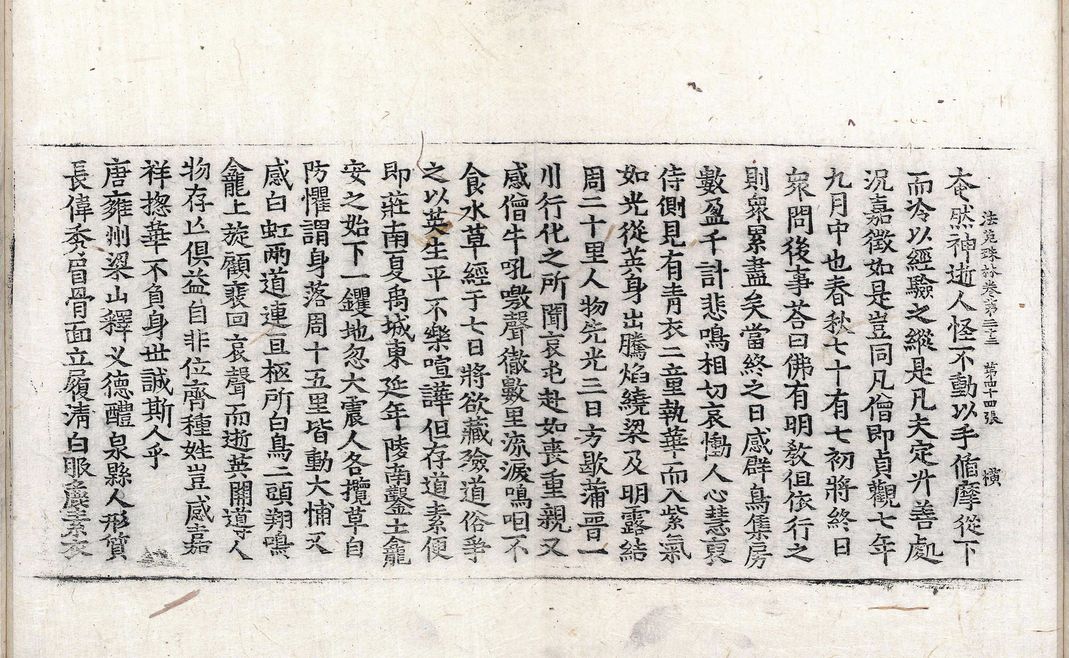 奄然神逝人怪不動以手循摩從下
法苑珠林卷第三十三 第四十四張 橫
而冷以經驗之縱是凡夫定升善處
況嘉徵如是豈同凡僧即貞觀七年
九月中也春秋七十有七初將終日
衆問後事荅曰佛有明敎但依行之
則衆累盡矣當終之日感群鳥集房
數盈千計悲鳴相切哀慟人心慧襄
侍側見有青衣二童執華而入紫氣
如光從英身出騰焰繞梁及明露結
周二十里人物失光三日方歇蒲晉一
川行化之所聞哀屯赴如喪重親又
感僧牛吼噭聲徹數里流淚嗚咽不
食水草經于七日將欲藏殮道俗爭
之以英生平不樂喧譁但存道素便
即莊南夏禹城東延年陵南鑿土龕
安之始下一钁地忽大震人各攬草自
防懼謂身落周十五里皆動大怖又
感白虹兩道連亘極所白鳥二頭翔鳴
龕上旋顧裵回哀聲而逝英開導人
物存亾俱益自非位齊種姓豈感嘉
祥揔華不負身世誠斯人乎
唐雍州梁山釋乂德醴泉縣人形質
長偉秀眉骨面立履淸白服麤素衣